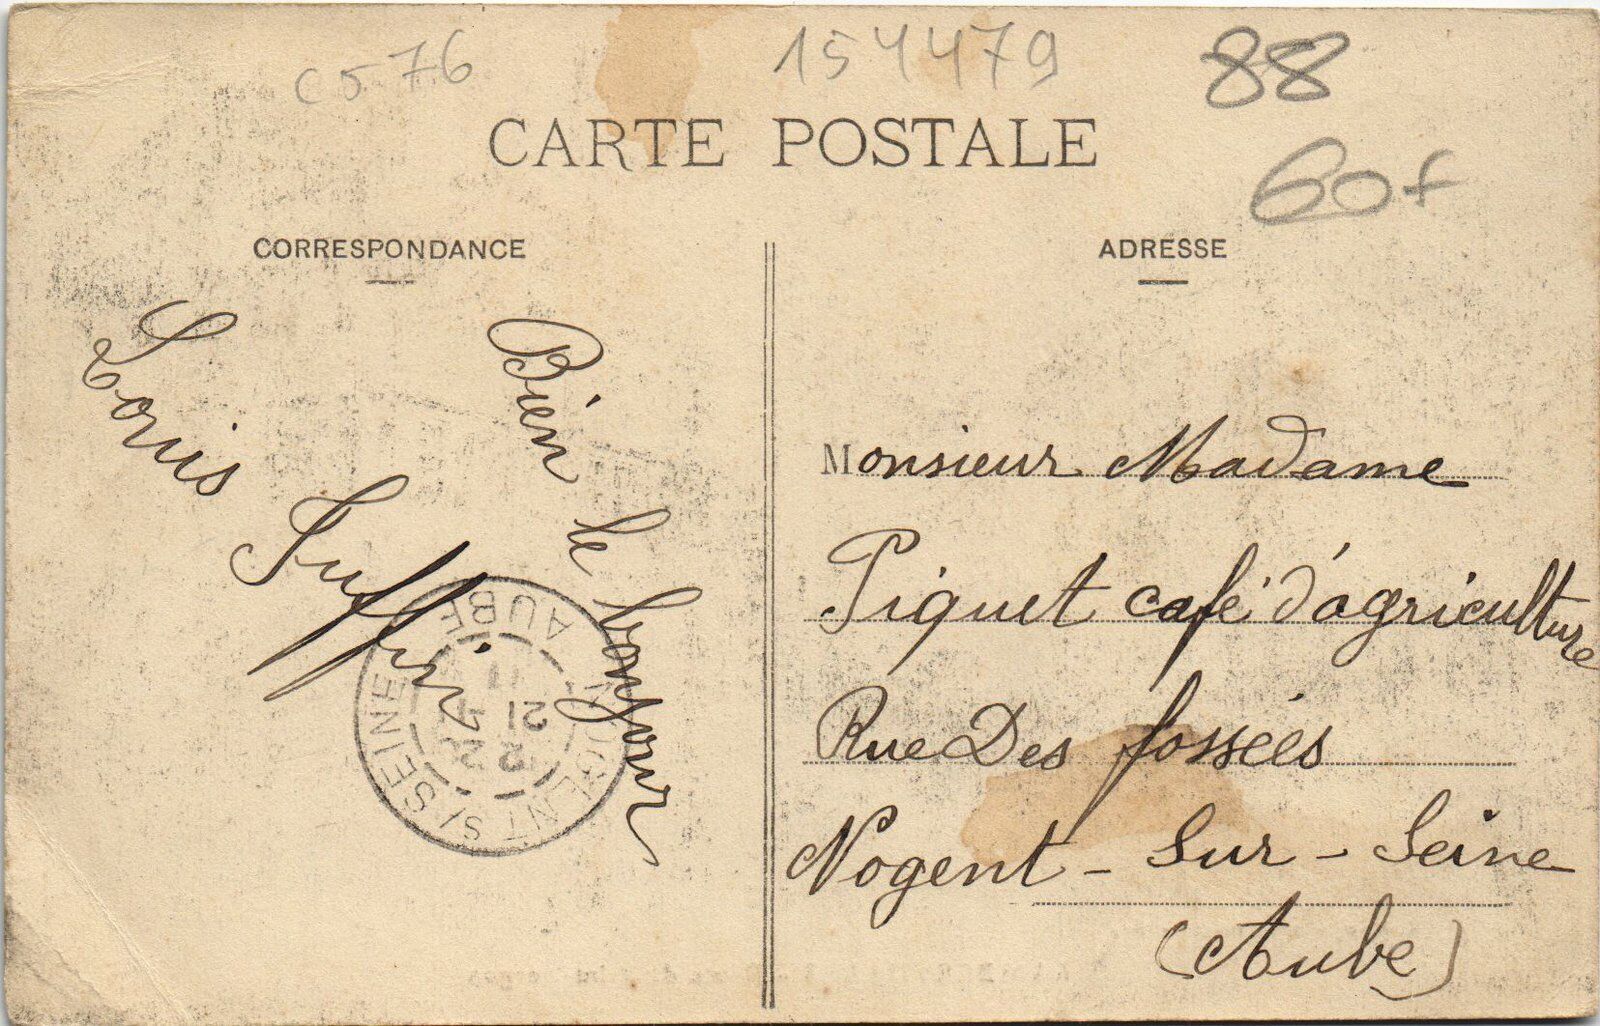 c5 76
154479
88
CARTE POSTALE
60f
CORRESPONDANCE
ADRESSE
Bien le bonjour
Louis Suffin
Monsieur Madame
Piguet café d'agriculture
Rue Des fossées
Nogent - Sur - Seine
(Aube)
NOGENT S/SEINE
AUBE